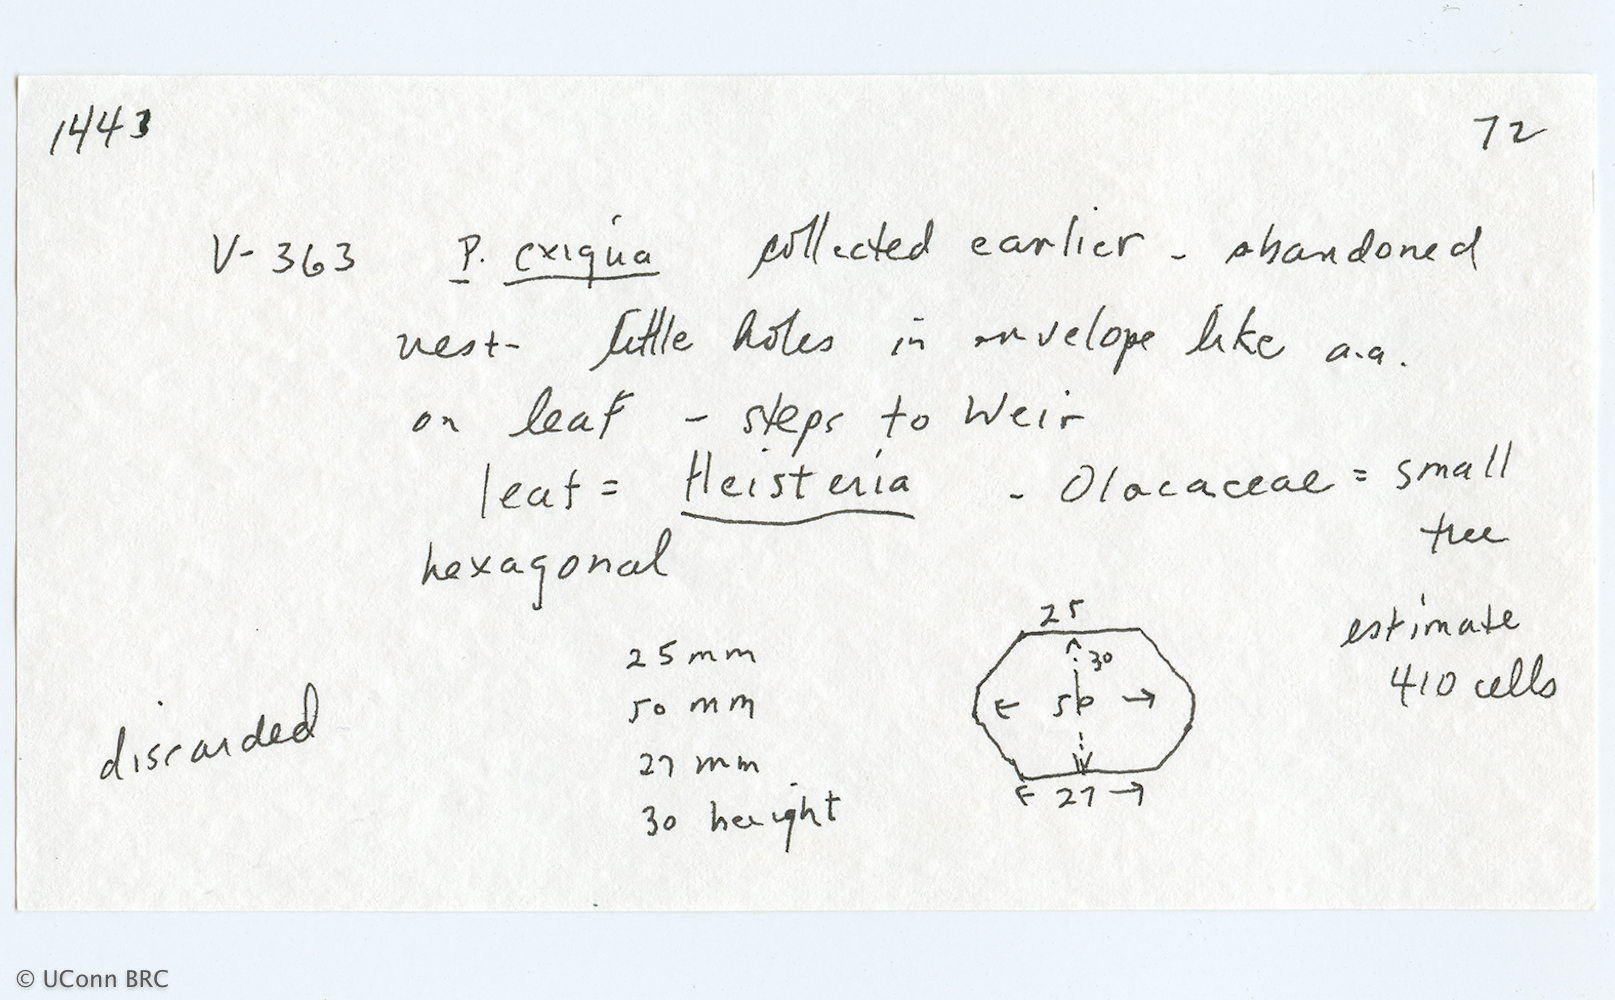 1443 72
V-363 P. exigua collected earlier - abandoned
nest- little holes in envelope like a.a.
on leaf - steps to Weir
leaf = Heisteria - Olacaceae = small
tree
hexagonal
25 mm
50 mm
27 mm
30 height
25
30
← 50 →
← 27 →
estimate
410 cells
discarded
© UConn BRC